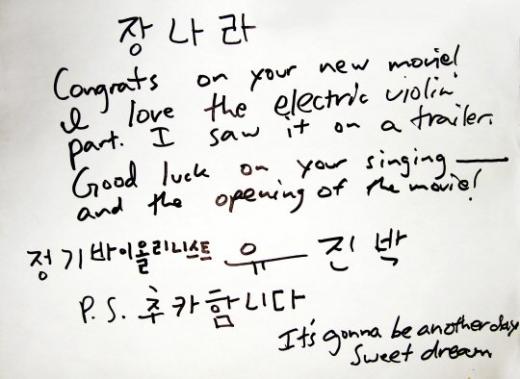 장나라
Congrats on your new movie!
I love the electric violin
part. I saw it on a trailer.
Good luck on your singing —
and the opening of the movie!
정기바이올리니스트 유진박
P.S. 추카함니다
It's gonna be another day
Sweet dream